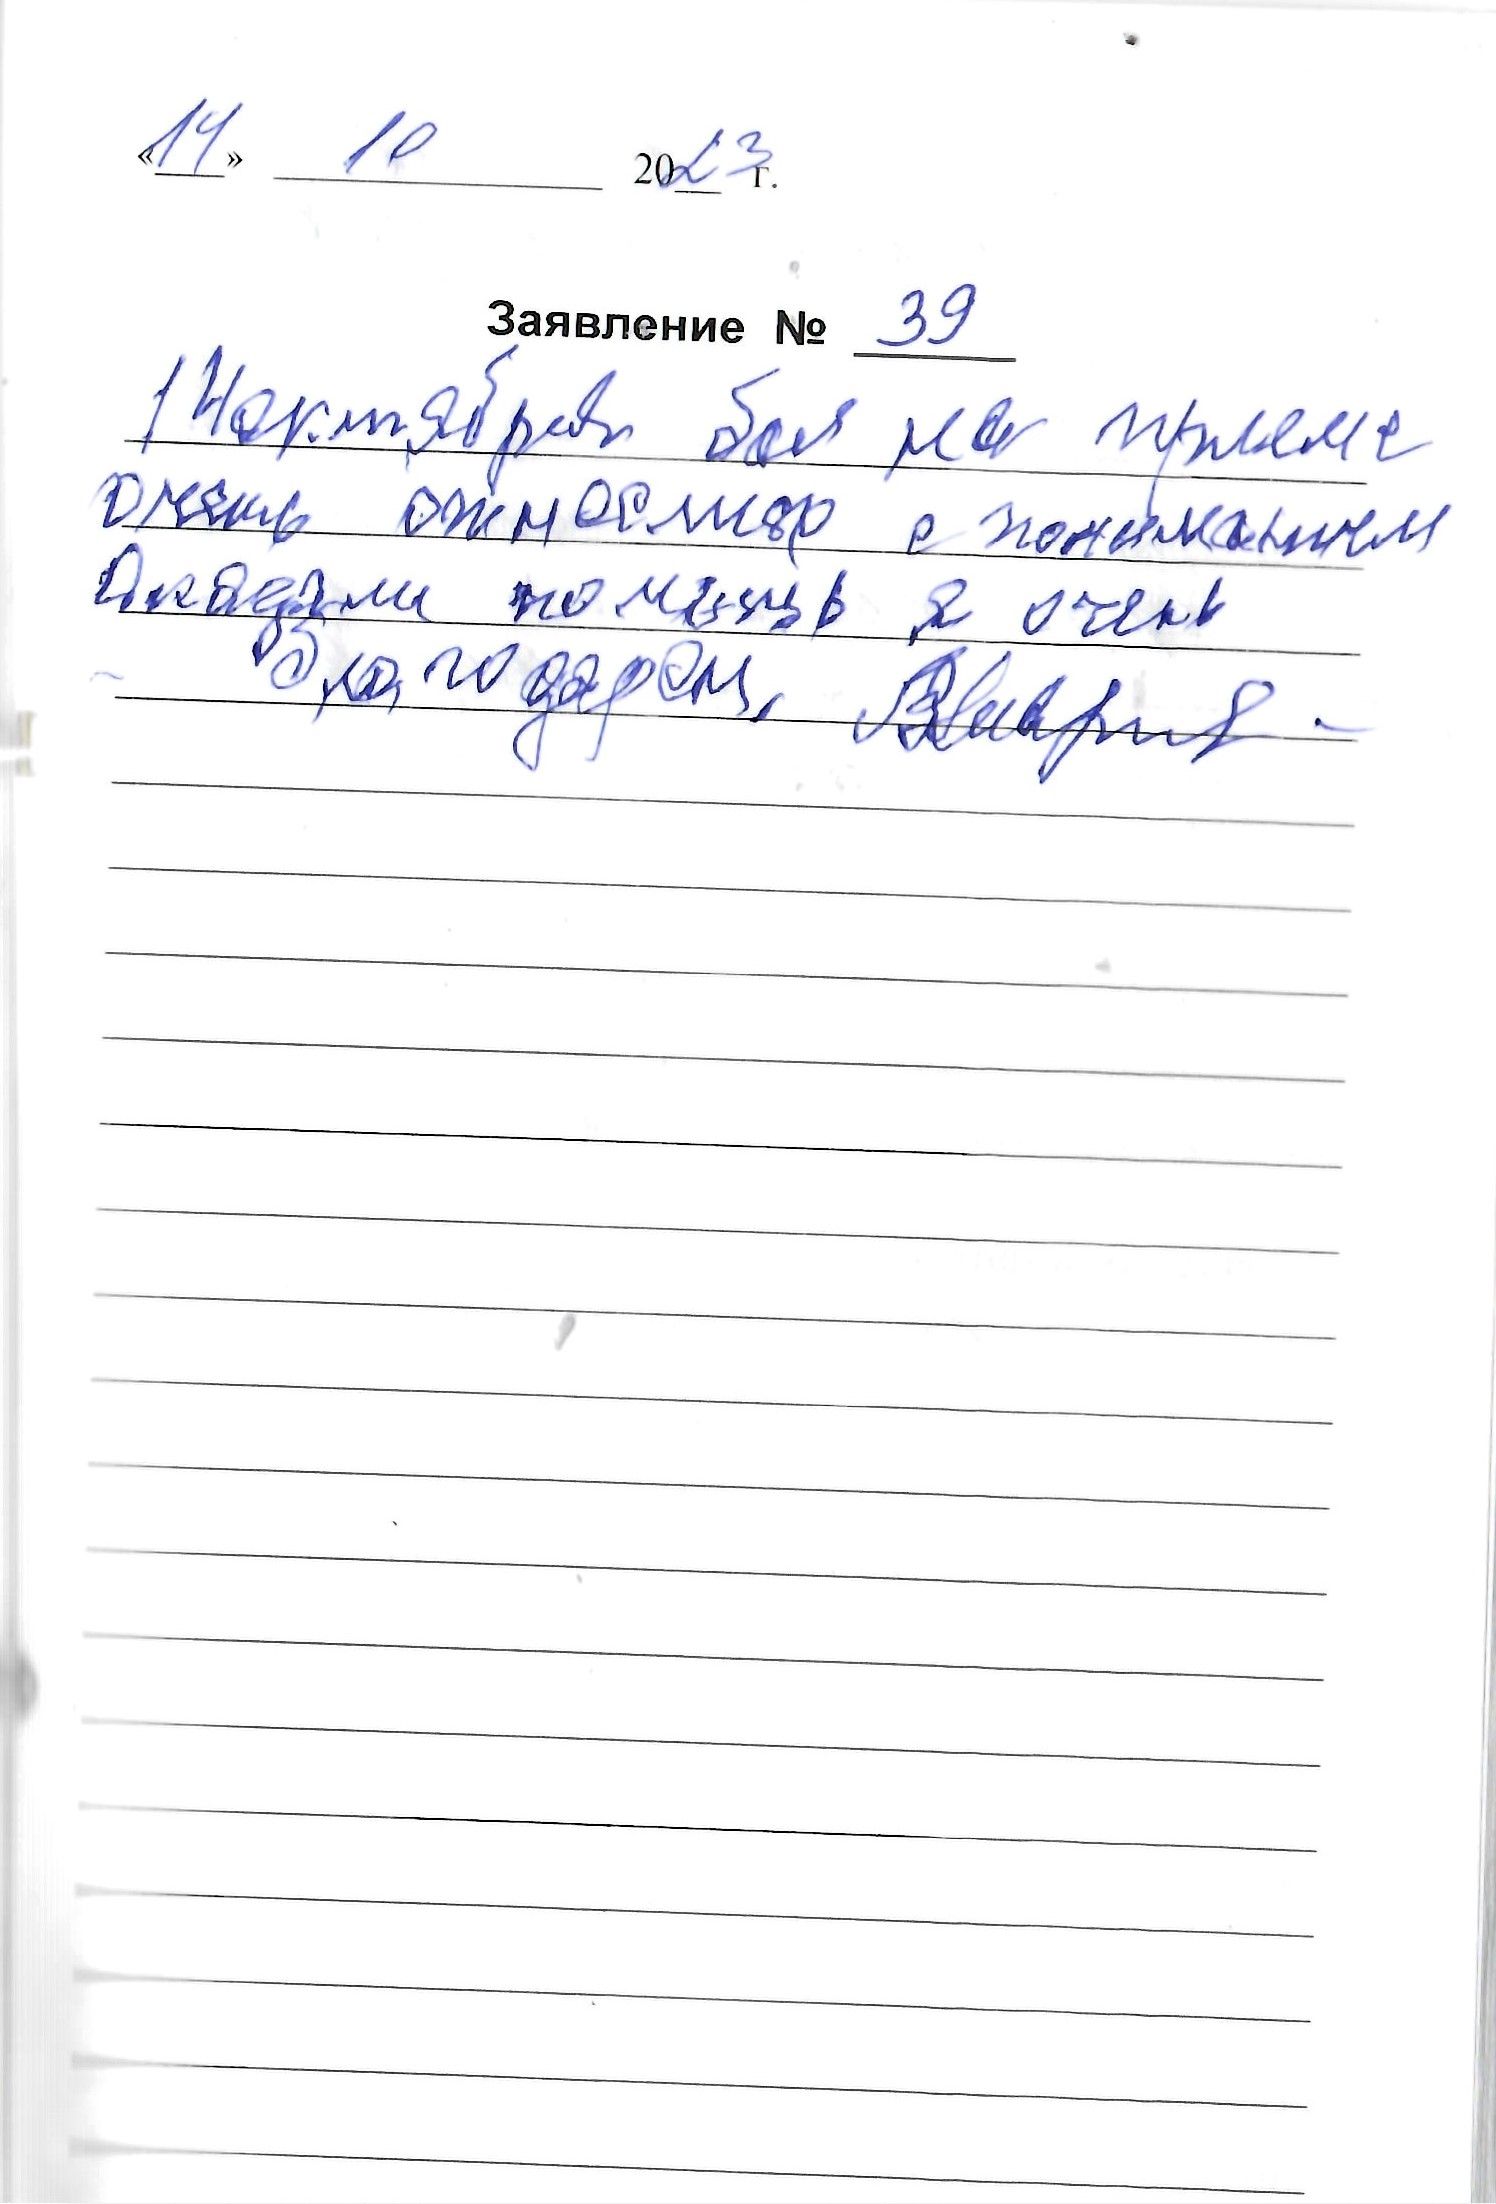 «14» 10 2023 г.
Заявление № 39
14 октября был на приеме
очень отнеслись с пониманием
Оказали помощь я очень
благодарен.